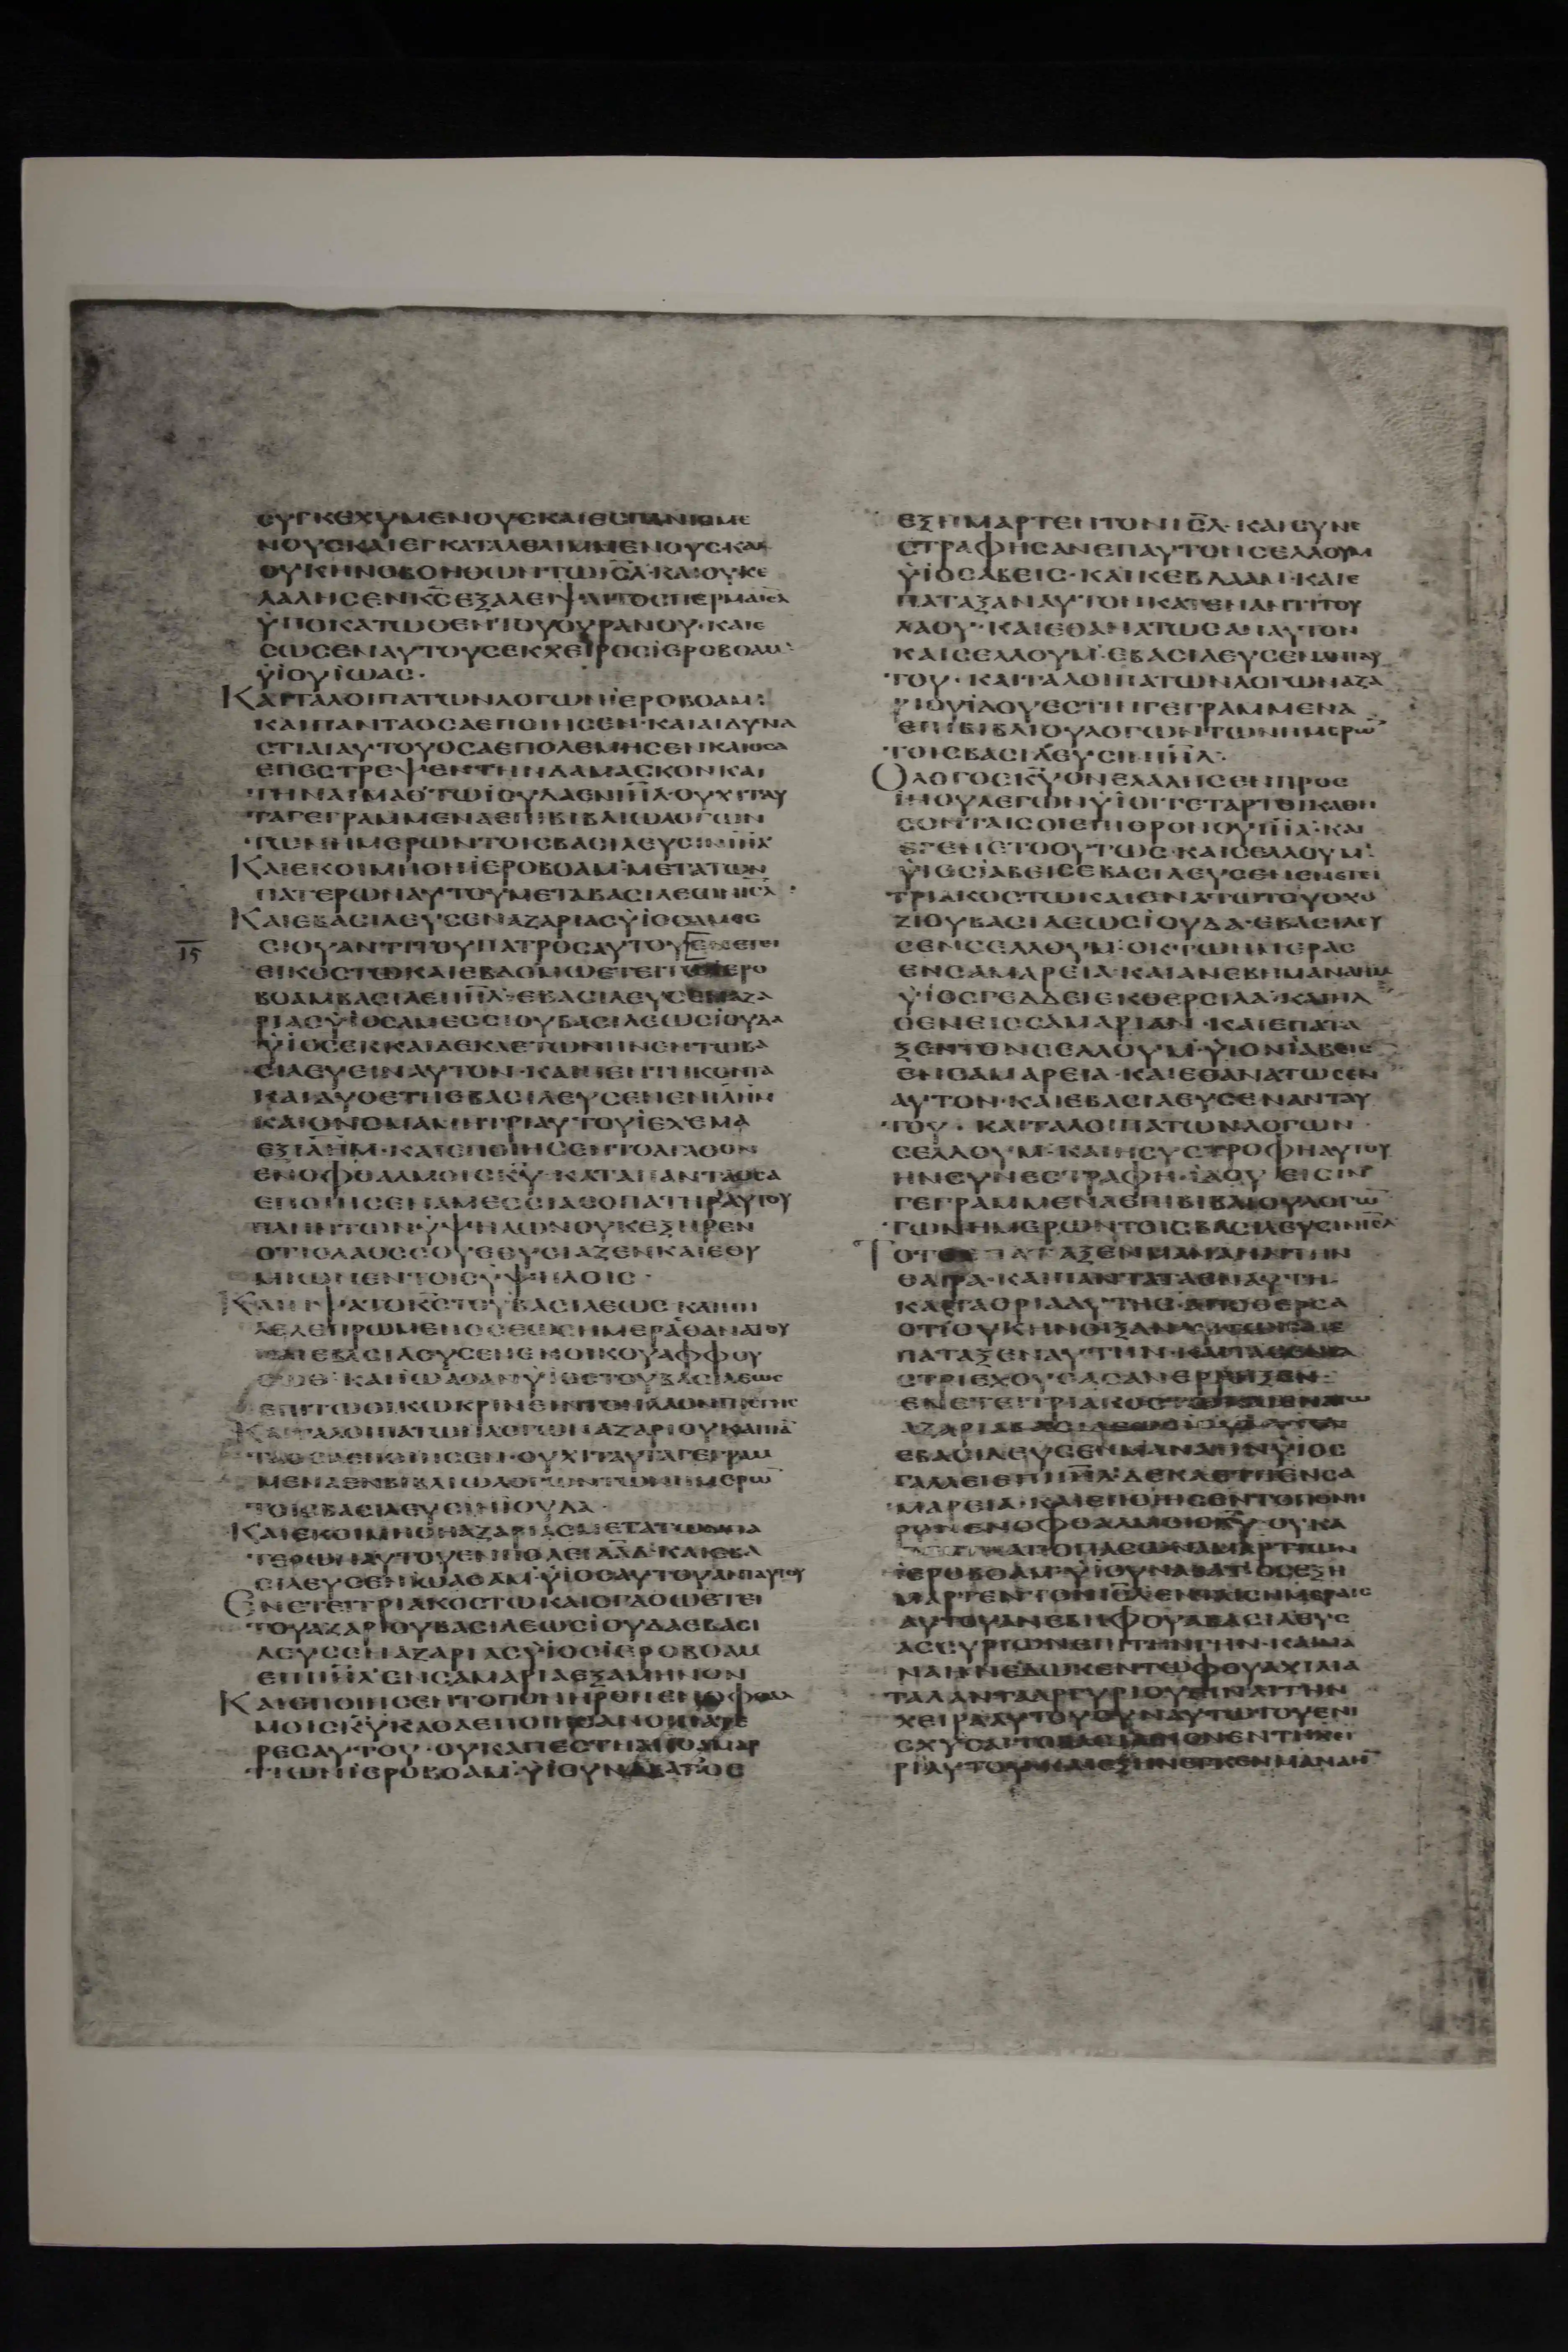 ΣΥΓΚΕΧΥΜΕΝΟΥΣΚΑΙΕΣΠΑΝΙΣΜΕ
ΝΟΥΣΚΑΙΕΓΚΑΤΑΛΕΛΙΜΜΕΝΟΥΣΚΑΙ
ΟΥΚΗΝΟΒΟΗΘΩΝΤΩΙΣΛ·ΚΑΙΟΥΚΕ
ΛΑΛΗΣΕΝΚΣΕΞΑΛΕΙΨΑΙΤΟΣΠΕΡΜΑΙΣΛ
ΥΠΟΚΑΤΩΘΕΝΤΟΥΟΥΡΑΝΟΥ·ΚΑΙΕ
ΣΩΣΕΝΑΥΤΟΥΣΕΚΧΕΙΡΟΣΪΕΡΟΒΟΑΜ·
ΫΙΟΥΪΩΑΣ·
ΚΑΙΤΑΛΟΙΠΑΤΩΝΛΟΓΩΝΪΕΡΟΒΟΑΜ·
ΚΑΙΠΑΝΤΑΟΣΑΕΠΟΙΗΣΕΝ·ΚΑΙΑΙΔΥΝΑ
ΣΤΙΑΙΑΥΤΟΥΟΣΑΕΠΟΛΕΜΗΣΕΝΚΑΙΟΣΑ
ΕΠΕΣΤΡΕΨΕΝΤΗΝΔΑΜΑΣΚΟΝΚΑΙ
ΤΗΝΑΙΜΑΘ·ΤΩΪΟΥΔΑΕΝΙΗΛ·ΟΥΧΙΤΑΥ
ΤΑΓΕΓΡΑΜΜΕΝΑΕΠΙΒΙΒΛΙΩΛΟΓΩΝ
ΤΩΝΗΜΕΡΩΝΤΟΙΣΒΑΣΙΛΕΥΣΙΝΙΗΛ
ΚΑΙΕΚΟΙΜΗΘΗΪΕΡΟΒΟΑΜ·ΜΕΤΑΤΩΝ
ΠΑΤΕΡΩΝΑΥΤΟΥΜΕΤΑΒΑΣΙΛΕΩΝΙΣΛ·
ΚΑΙΕΒΑΣΙΛΕΥΣΕΝΑΖΑΡΙΑΣΫΙΟΣΑΜΕΣ
ΙΕ
ΣΙΟΥΑΝΤΙΤΟΥΠΑΤΡΟΣΑΥΤΟΥΕΝΕΤΕΙ
ΕΙΚΟΣΤΩΚΑΙΕΒΔΟΜΩΕΤΕΙΤΩΪΕΡΟ
ΒΟΑΜΒΑΣΙΛΕΙΙΗΛ·ΕΒΑΣΙΛΕΥΣΕΝΑΖΑ
ΡΙΑΣΫΙΟΣΑΜΕΣΣΙΟΥΒΑΣΙΛΕΩΣΪΟΥΔΑ
ΫΙΟΣΕΚΚΑΙΔΕΚΑΕΤΩΝΗΝΕΝΤΩΒΑ
ΣΙΛΕΥΕΙΝΑΥΤΟΝ·ΚΑΙΠΕΝΤΗΚΟΝΤΑ
ΚΑΙΔΥΟΕΤΗΕΒΑΣΙΛΕΥΣΕΝΕΝΙΛΗΜ
ΚΑΙΟΝΟΜΑΜΗΤΡΙΑΥΤΟΥΪΕΧΕΜΑ
ΕΞΙΛΗΜ·ΚΑΙΕΠΟΙΗΣΕΝΤΟΑΓΑΘΟΝ
ΕΝΟΦΘΑΛΜΟΙΣΚΥ·ΚΑΤΑΠΑΝΤΑΟΣΑ
ΕΠΟΙΗΣΕΝΑΜΕΣΣΙΑΣΟΠΑΤΗΡΑΥΤΟΥ
ΠΛΗΝΤΩΝΫΨΗΛΩΝΟΥΚΕΞΗΡΕΝ
ΟΤΙΟΛΑΟΣΣΟΥΕΘΥΣΙΑΖΕΝΚΑΙΕΘΥ
ΜΙΩΠΕΝΤΟΙΣΫΨΗΛΟΙΣ·
ΚΑΙΗΨΑΤΟΚΣΤΟΥΒΑΣΙΛΕΩΣΚΑΙΗΝ
ΛΕΛΕΠΡΩΜΕΝΟΣΕΩΣΗΜΕΡΑΣΘΑΝΑΤΟΥ
ΚΑΙΕΒΑΣΙΛΕΥΣΕΝΕΝΟΙΚΟΥΑΦΦΟΥ
ΣΩΘ·ΚΑΙΪΩΑΘΑΜΫΙΟΣΤΟΥΒΑΣΙΛΕΩΣ
ΕΠΙΤΩΟΙΚΩΚΡΙΝΕΙΝΤΟΝΛΑΟΝΤΗΣΓΗΣ
ΚΑΙΤΑΛΟΙΠΑΤΩΝΛΟΓΩΝΑΖΑΡΙΟΥΚΑΙΠΑ
ΤΑΟΣΑΕΠΟΙΗΣΕΝ·ΟΥΧΙΤΑΥΤΑΓΕΓΡΑΜ
ΜΕΝΑΕΝΒΙΒΛΙΩΛΟΓΩΝΤΩΝΗΜΕΡΩ
ΤΟΙΣΒΑΣΙΛΕΥΣΙΝΪΟΥΔΑ·
ΚΑΙΕΚΟΙΜΗΘΗΑΖΑΡΙΑΣΜΕΤΑΤΩΝΠΑ
ΤΕΡΩΝΑΥΤΟΥΕΝΠΟΛΕΙΔΑΔ·ΚΑΙΕΒΑ
ΣΙΛΕΥΣΕΝΪΩΑΘΑΜ·ΫΙΟΣΑΥΤΟΥΑΝΤΑΥΤΟΥ
ΕΝΕΤΕΙΤΡΙΑΚΟΣΤΩΚΑΙΟΓΔΟΩΕΤΕΙ
ΤΟΥΑΖΑΡΙΟΥΒΑΣΙΛΕΩΣΪΟΥΔΑΕΒΑΣΙ
ΛΕΥΣΕΝΑΖΑΡΙΑΣΫΙΟΣΪΕΡΟΒΟΑΜ
ΕΠΙΙΗΛ·ΕΝΣΑΜΑΡΙΑΕΞΑΜΗΝΟΝ
ΚΑΙΕΠΟΙΗΣΕΝΤΟΠΟΝΗΡΟΝΕΝΟΦΘΑΛ
ΜΟΙΣΚΥΚΑΘΑΕΠΟΙΗΣΑΝΟΙΠΑΤΕ
ΡΕΣΑΥΤΟΥ·ΟΥΚΑΠΕΣΤΗΑΠΟΑΜΑΡ
ΤΙΩΝΪΕΡΟΒΟΑΜ·ΫΙΟΥΝΑΒΑΤ·ΟΣ
ΕΞΗΜΑΡΤΕΝΤΟΝΙΣΛ·ΚΑΙΣΥΝΕ
ΣΤΡΑΦΗΣΑΝΕΠΑΥΤΟΝΣΕΛΛΟΥΜ
ΫΙΟΣΑΒΕΙΣ·ΚΑΙΚΕΒΛΑΑΜ·ΚΑΙΕ
ΠΑΤΑΞΑΝΑΥΤΟΝΚΑΤΕΝΑΝΤΙΤΟΥ
ΛΑΟΥ·ΚΑΙΕΘΑΝΑΤΩΣΑΝΑΥΤΟΝ
ΚΑΙΣΕΛΛΟΥΜ·ΕΒΑΣΙΛΕΥΣΕΝΑΝΤΑΥ
ΤΟΥ·ΚΑΙΤΑΛΟΙΠΑΤΩΝΛΟΓΩΝΑΖΑ
ΡΙΟΥΪΔΟΥΕΣΤΙΝΓΕΓΡΑΜΜΕΝΑ
ΕΠΙΒΙΒΛΙΟΥΛΟΓΩΝΤΩΝΗΜΕΡΩ
ΤΟΙΣΒΑΣΙΛΕΥΣΙΝΙΗΛ·
ΟΛΟΓΟΣΚΥΟΝΕΛΑΛΗΣΕΝΠΡΟΣ
ΪΗΟΥΛΕΓΩΝΫΙΟΙΤΕΤΑΡΤΟΙΚΑΘΗ
ΣΟΝΤΑΙΣΟΙΕΠΙΘΡΟΝΟΥΙΗΛ·ΚΑΙ
ΕΓΕΝΕΤΟΟΥΤΩΣ·ΚΑΙΣΕΛΛΟΥΜ·
ΫΙΟΣΪΑΒΕΙΣΕΒΑΣΙΛΕΥΣΕΝΕΝΕΤΕΙ
ΤΡΙΑΚΟΣΤΩΚΑΙΕΝΑΤΩΤΟΥΟΧΟ
ΖΙΟΥΒΑΣΙΛΕΩΣΪΟΥΔΑ·ΕΒΑΣΙΛΕΥ
ΣΕΝΣΕΛΛΟΥΜ·
ΕΝΣΑΜΑΡΕΙΑ·ΚΑΙΑΝΕΒΗΜΑΝΑΗΜ
ΫΙΟΣΓΕΔΔΕΙΕΚΘΕΡΣΙΛΑ·ΚΑΙΗΛ
ΘΕΝΕΙΣΣΑΜΑΡΙΑΝ·ΚΑΙΕΠΑΤΑ
ΞΕΝΤΟΝΣΕΛΛΟΥΜ·ΫΙΟΝΪΑΒΕΙΣ
ΕΝΣΑΜΑΡΕΙΑ·ΚΑΙΕΘΑΝΑΤΩΣΕΝ
ΑΥΤΟΝ·ΚΑΙΕΒΑΣΙΛΕΥΣΕΝΑΝΤΑΥ
ΤΟΥ·ΚΑΙΤΑΛΟΙΠΑΤΩΝΛΟΓΩΝ
ΣΕΛΛΟΥΜ·ΚΑΙΗΣΥΣΤΡΟΦΗΑΥΤΟΥ
ΗΝΣΥΝΕΣΤΡΑΦΗ·ΪΔΟΥΕΙΣΙΝ
ΓΕΓΡΑΜΜΕΝΑΕΠΙΒΙΒΛΙΟΥΛΟΓΩ
ΤΩΝΗΜΕΡΩΝΤΟΙΣΒΑΣΙΛΕΥΣΙΝΙΣΛ
ΤΟΤΕΕΠΑΤΑΞΕΝΜΑΝΑΗΜΤΗΝ
ΘΑΙΡΑ·ΚΑΙΠΑΝΤΑΤΑΕΝΑΥΤΗ·
ΚΑΙΤΑΟΡΙΑΑΥΤΗΣ·ΑΠΟΘΕΡΣΑ
ΟΤΙΟΥΚΗΝΟΙΞΑΝ
ΠΑΤΑΞΕΝΑΥΤΗΝ·
ΣΤΡΙΕΧΟΥΣΑΣΑΝΕΡΡΗΞΕΝ·
ΕΝΕΤΕΙΤΡΙΑΚΟΣΤΩΚΑΙΕΝΑΤΩ
ΑΖΑΡΙΑΒΑΣΙΛΕΩΣΪΟΥΔΑ
ΕΒΑΣΙΛΕΥΣΕΝΜΑΝΑΗΝΫΙΟΣ
ΓΑΔΔΕΙΕΠΙΙΗΛ·ΔΕΚΑΕΤΗΕΝΣΑ
ΜΑΡΕΙΑ·ΚΑΙΕΠΟΙΗΣΕΝΤΟΠΟΝΗ
ΡΟΝΕΝΟΦΘΑΛΜΟΙΣΚΥ·ΟΥΚΑ
ΠΕΣΤΗΑΠΟΠΑΣΩΝΑΜΑΡΤΙΩΝ
ΪΕΡΟΒΟΑΜ·ΫΙΟΥΝΑΒΑΤ·ΟΣΕΞΗ
ΜΑΡΤΕΝΤΟΝΙΣΛ·ΕΝΤΑΙΣΗΜΕΡΑΙΣ
ΑΥΤΟΥΑΝΕΒΗΦΟΥΑΒΑΣΙΛΕΥΣ
ΑΣΣΥΡΙΩΝΕΠΙΤΗΝΓΗΝ·ΚΑΙΜΑ
ΝΑΗΝΕΔΩΚΕΝΤΩΦΟΥΑΧΙΛΙΑ
ΤΑΛΑΝΤΑΑΡΓΥΡΙΟΥΕΙΝΑΙΤΗΝ
ΧΕΙΡΑΑΥΤΟΥΟΥΝΑΥΤΩΤΟΥΕΝΙ
ΣΧΥΣΑΙΤΟΒΑΣΙΛΕΙΟΝΕΝΤΗΧΕΙ
ΡΙΑΥΤΟΥ·ΚΑΙΕΞΗΝΕΓΚΕΝΜΑΝΑΗ